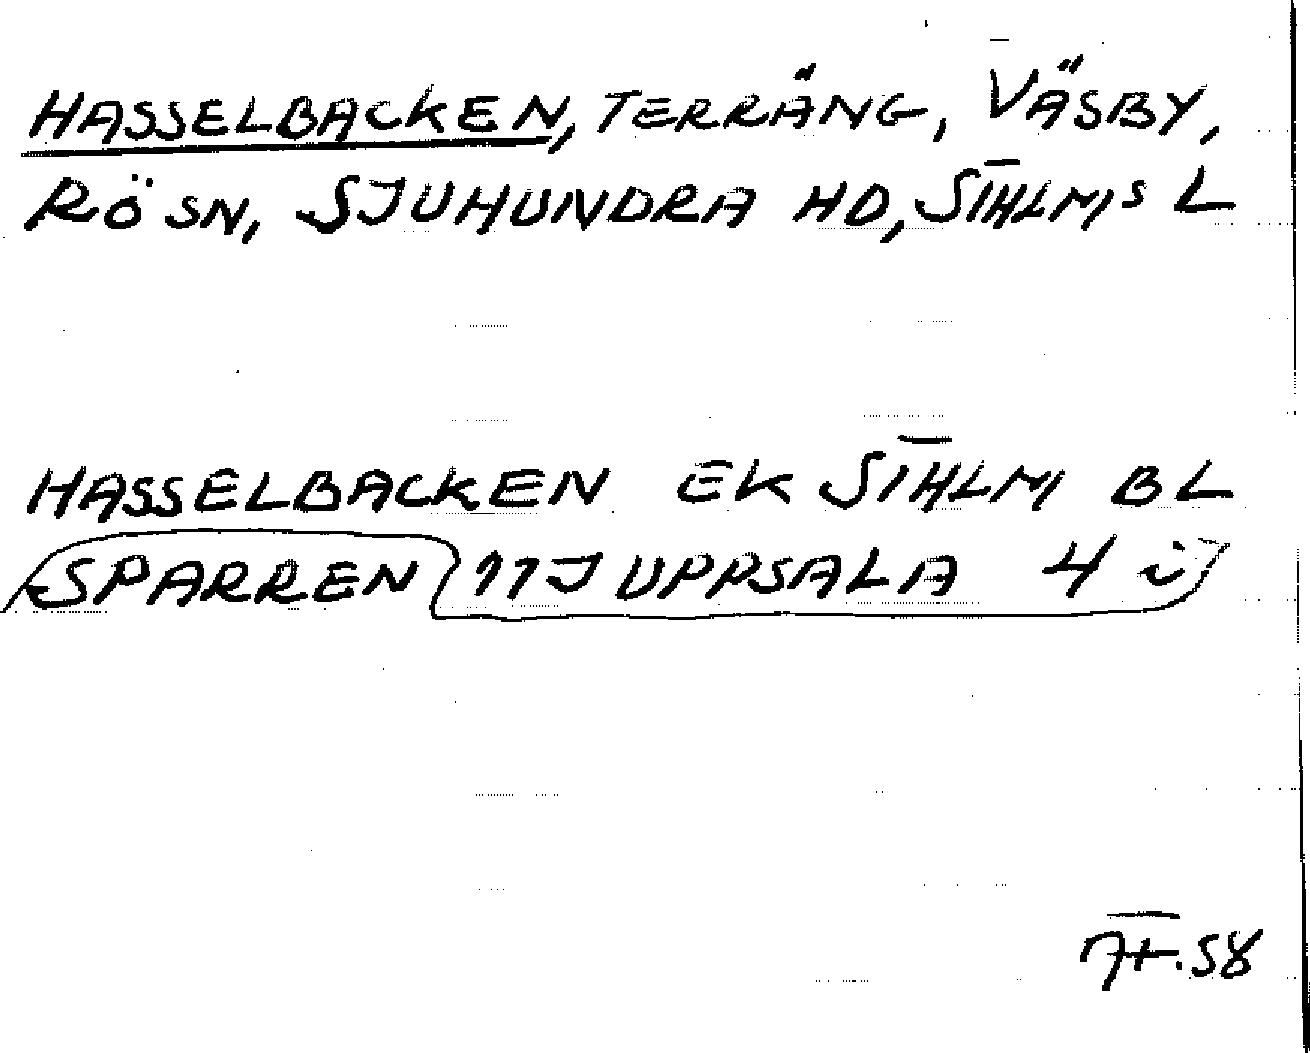 HASSELBACKEN, TERRÄNG, VÄSBY,
RÖ SN, SJUHUNDRA HD, STHLMS L
HASSELBACKEN EK STHLM BL
SPARREN 11J UPPSALA 4 i